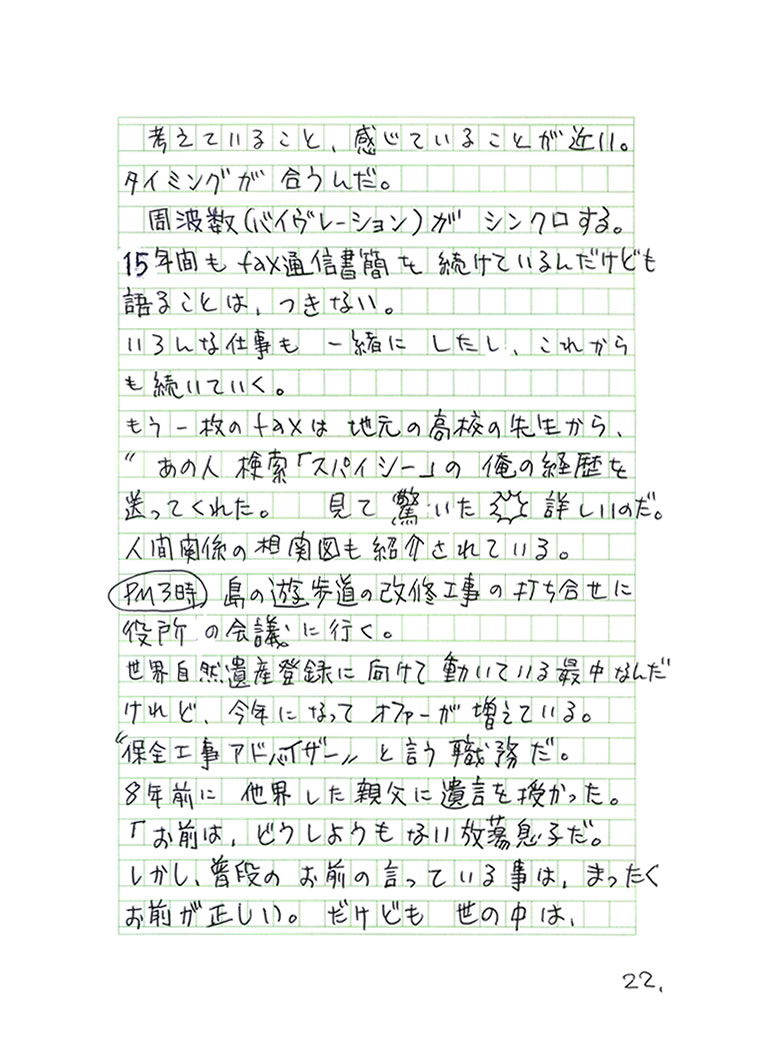 考えていること、感じていることが近い。
タイミングが合うんだ。
周波数(バイヴレーション)が シンクロする。
15年間も fax通信書簡を 続けているんだけども
語ることは、つきない。
いろんな仕事も 一緒に したし、これから
も続いていく。
もう一枚のfaxは 地元の高校の先生から、
〃 あの人 検索「スパイシー」の 俺の経歴を
送ってくれた。 見て 驚いた 詳しいのだ。
人間関係の相関図も紹介されている。
PM3時 島の遊歩道の改修工事の打ち合せに
役所の会議に行く。
世界自然遺産登録に向けて動いている最中なんだ
けれど、今年になって オファーが増えている。
〝保全工事アドバイザー〟と言う職務だ。
8年前に 他界した親父に遺言を授かった。
「お前は、どうしようもない放蕩息子だ。
しかし、普段の お前の言っている事は、まったく
お前が正しい。だけども 世の中は、
22.